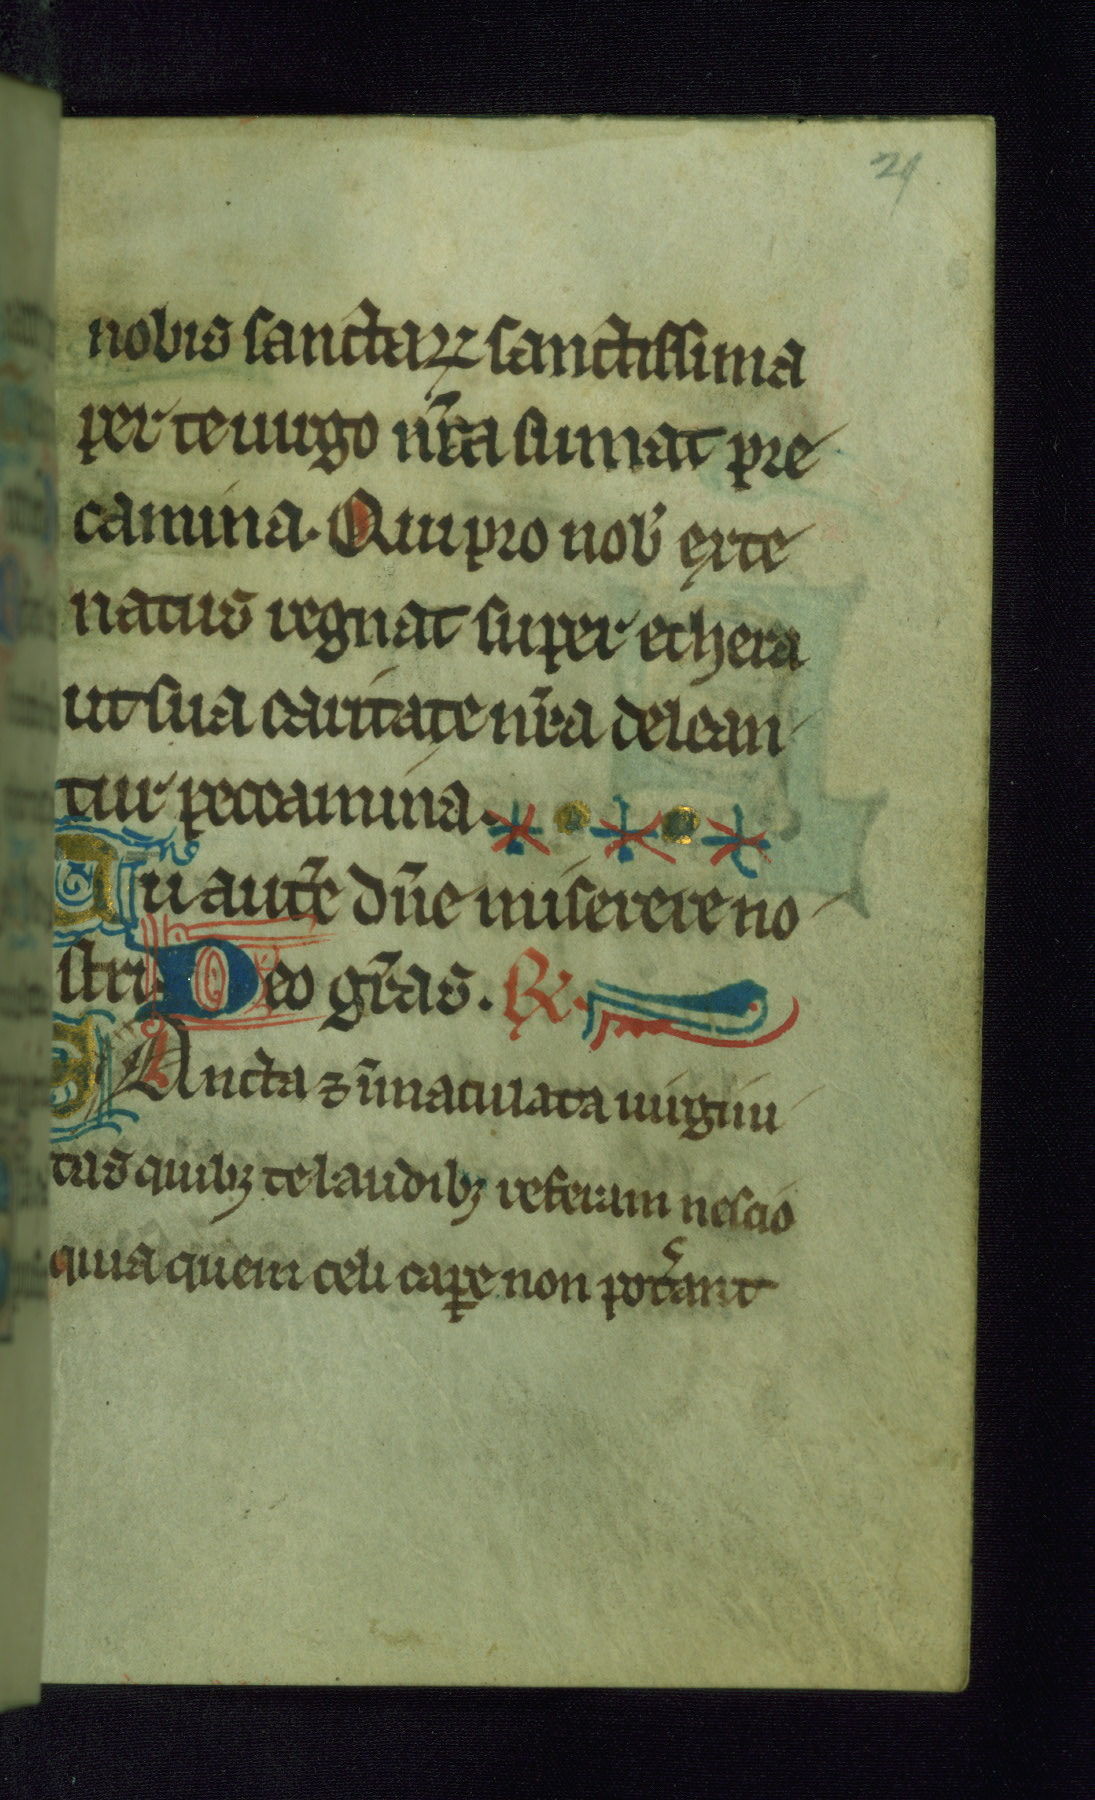 29
nobis sanctaꝝ sanctissima
per te uirgo nr̄a sumat pre
camina. Qui pro nob̓ ex te
natus regnat super ethera
ut sua caritate nr̄a delean
tur peccamina.
Tu autē dn̄e miserere no
stri Deo gr̄as. ℟.
SAncta ⁊ īmaculata uirgini
tas quibꝫ te laudibꝫ referam nescio
quia quem celi caꝑe non pot̓ant